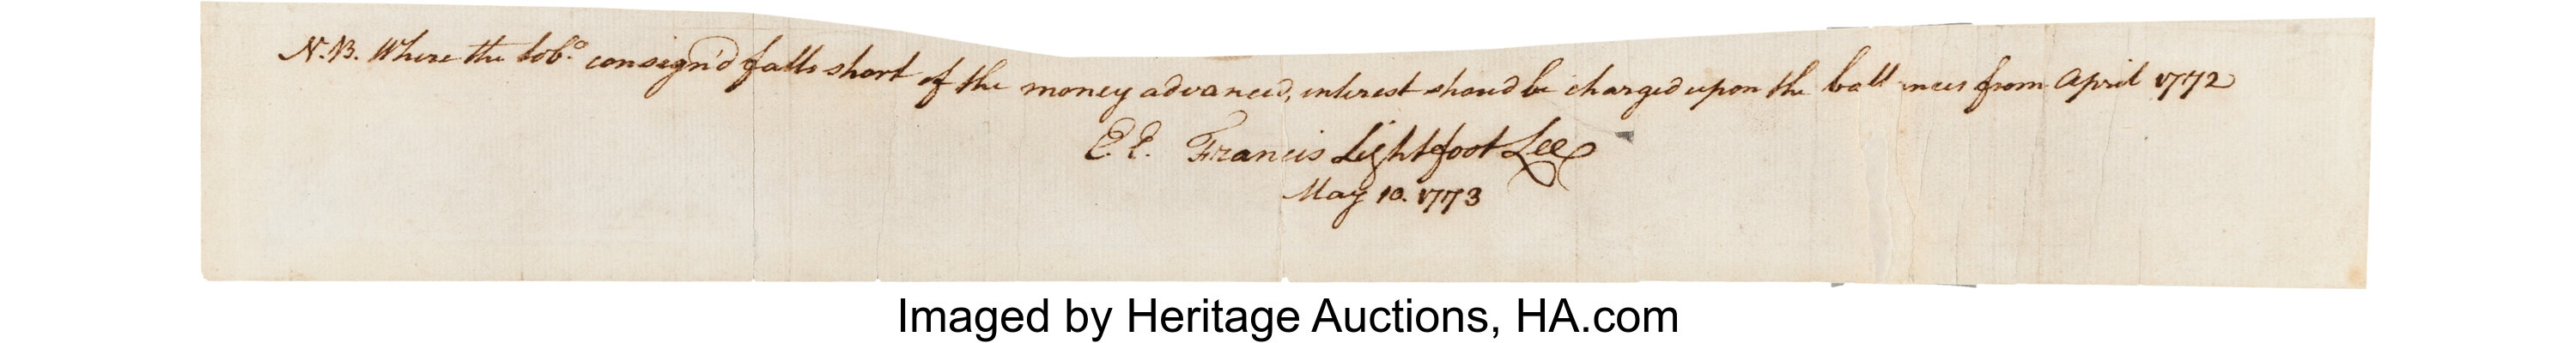 N.B. Where the tobº consign'd falls short of the money advanced, interest shoud be charged upon the ballances from April 1772
E.E. Francis Lightfoot Lee
May 10. 1773
Imaged by Heritage Auctions, HA.com